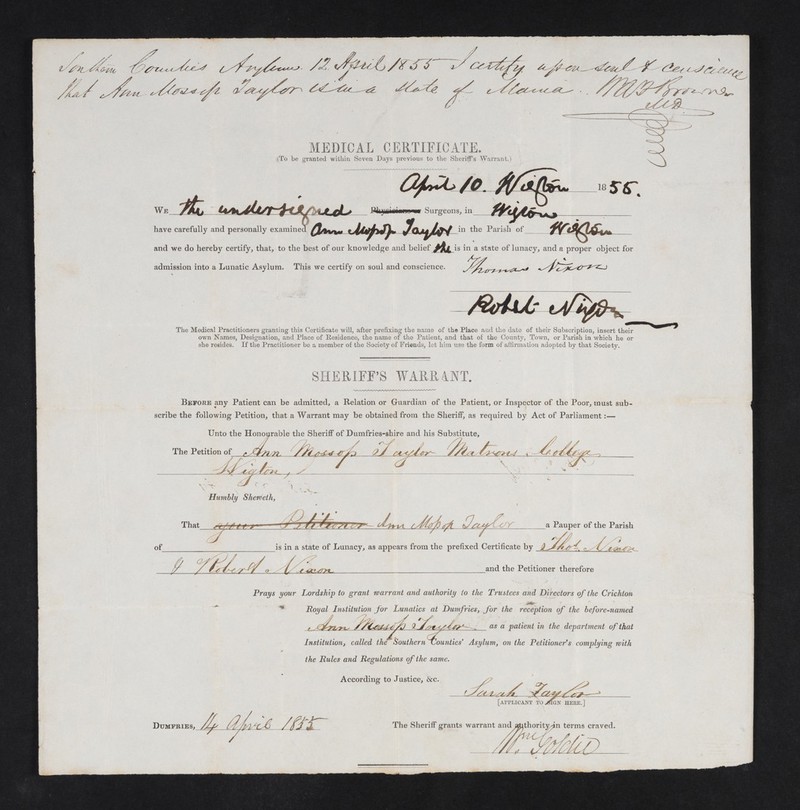 Southern Counties Asylum 12 April 1855 I certify upon soul & conscience
that Ann Mossop Taylor is in a state of Mania. W A F Browne
MD
MEDICAL CERTIFICATE.
(To be granted within Seven Days previous to the Sheriff's Warrant.)
April 10. Wigton 1855.
WE the undersigned Physicians or Surgeons, in Wigton
have carefully and personally examined Ann Mossop Taylor in the Parish of Wigton
and we do hereby certify, that, to the best of our knowledge and belief she is in a state of lunacy, and a proper object for
admission into a Lunatic Asylum. This we certify on soul and conscience. Thomas Nixon
Robert Nixon
The Medical Practitioners granting this Certificate will, after prefixing the name of the Place and the date of their Subscription, insert their
own Names, Designation, and Place of Residence, the name of the Patient, and that of the County, Town, or Parish in which he or
she resides. If the Practitioner be a member of the Society of Friends, let him use the form of affirmation adopted by that Society.
SHERIFF'S WARRANT.
BEFORE any Patient can be admitted, a Relation or Guardian of the Patient, or Inspector of the Poor, must sub-
scribe the following Petition, that a Warrant may be obtained from the Sheriff, as required by Act of Parliament:—
Unto the Honourable the Sheriff of Dumfries-shire and his Substitute,
The Petition of Ann Mossop Taylor Matrons College
Wigton,
Humbly Sheweth,
That your Petitioner Ann Mossop Taylor a Pauper of the Parish
of is in a state of Lunacy, as appears from the prefixed Certificate by Thos. Nixon
& Robert Nixon and the Petitioner therefore
Prays your Lordship to grant warrant and authority to the Trustees and Directors of the Crichton
Royal Institution for Lunatics at Dumfries, for the reception of the before-named
Ann Mossop Taylor as a patient in the department of that
Institution, called the Southern Counties' Asylum, on the Petitioner's complying with
the Rules and Regulations of the same.
According to Justice, &c.
Sarah Taylor
[APPLICANT TO SIGN HERE.]
DUMFRIES, 14 April 1855 The Sheriff grants warrant and authority in terms craved.
Wm Goldie